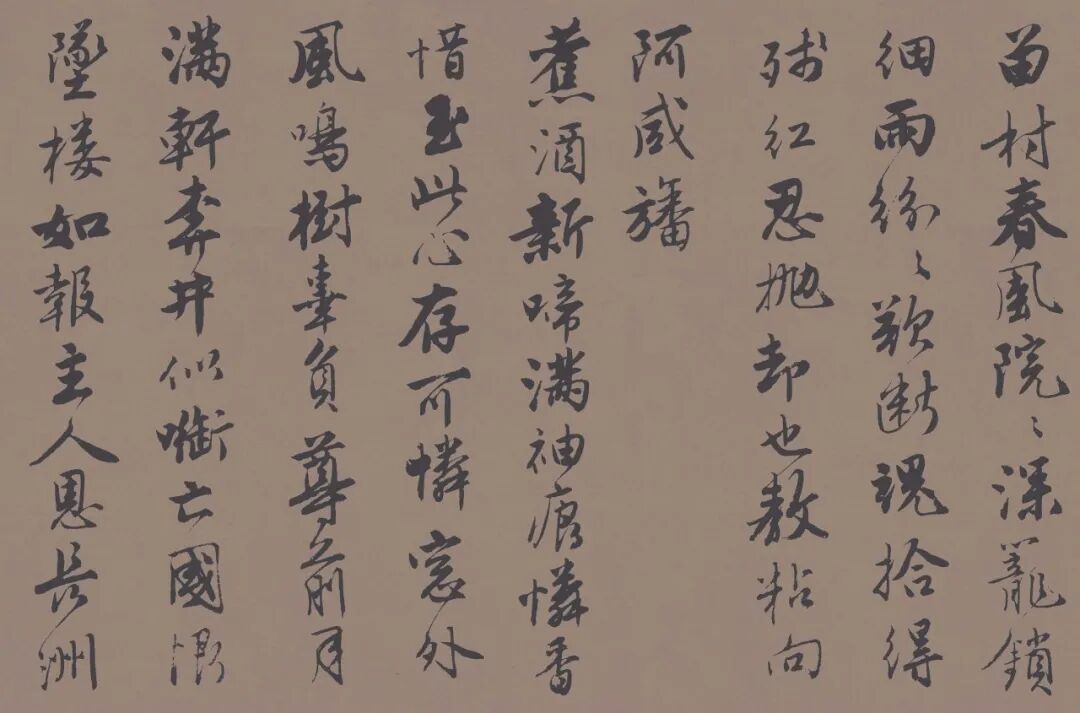 村春風院々深籠鎖
細雨紛々欹斷魂拾得
殘紅忍拋却也教粘向
阿咸旛
舊酒新啼滿袖痕憐香
惜玉此心存可憐窓外
風鳴樹辜負尊前月
滿軒奔井似啣亡國恨
墜樓如報主人恩長洲